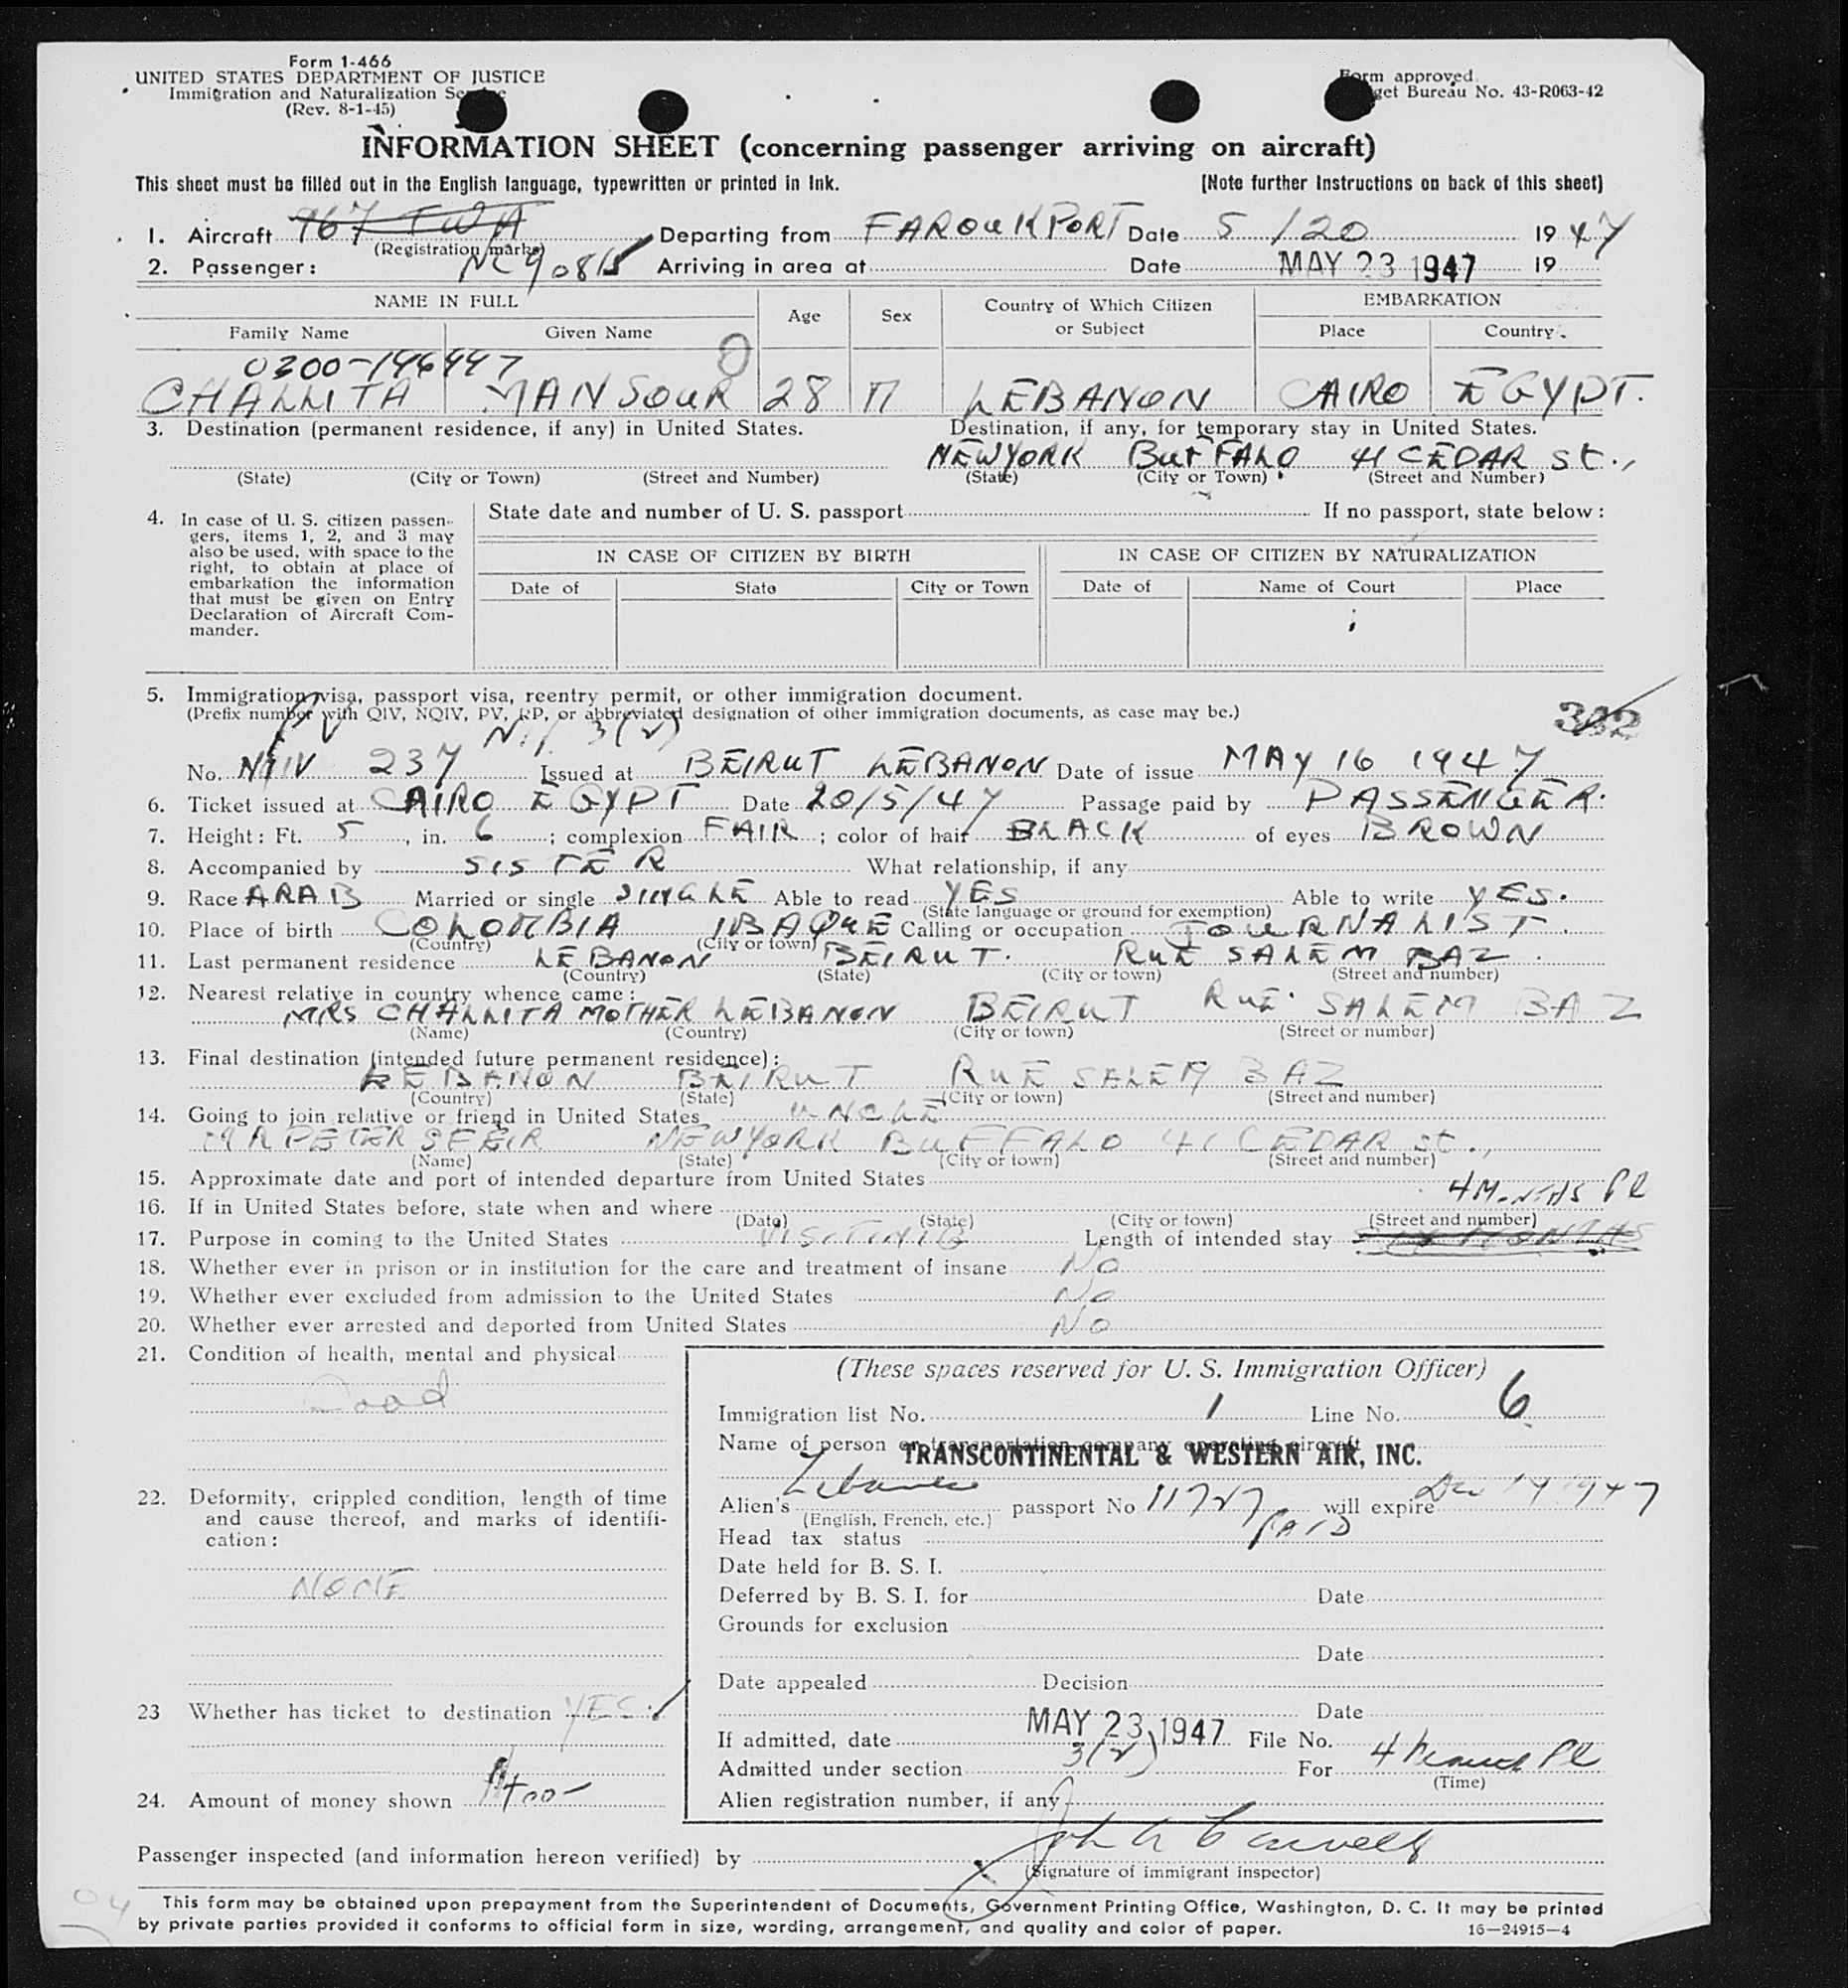 Form 1-466
UNITED STATES DEPARTMENT OF JUSTICE
Immigration and Naturalization Se
(Rev. 8-1-45)
Form approved.
get Bureau No. 43-R063-42
INFORMATION SHEET (concerning passenger arriving on aircraft)
This sheet must be filled out in the English language, typewritten or printed in ink. (Note further instructions on back of this sheet)
1. Aircraft 767 TWA Departing from FAROUK PORT Date 5/20 1947
(Registration marks)
2. Passenger: NC 90815 Arriving in area at Date MAY 23 1947 19
NAME IN FULL Age Sex Country of Which Citizen or Subject EMBARKATION
Family Name Given Name Place Country
0300-146447
CHALLITA MANSOUR 28 M LEBANON CAIRO EGYPT.
3. Destination (permanent residence, if any) in United States. Destination, if any, for temporary stay in United States.
NEWYORK BUFFALO 41 CEDAR St.,
(State) (City or Town) (Street and Number) (State) (City or Town) (Street and Number)
4. In case of U. S. citizen passen-
gers, items 1, 2, and 3 may
also be used, with space to the
right, to obtain at place of
embarkation the information
that must be given on Entry
Declaration of Aircraft Com-
mander.
State date and number of U. S. passport If no passport, state below:
IN CASE OF CITIZEN BY BIRTH IN CASE OF CITIZEN BY NATURALIZATION
Date of State City or Town Date of Name of Court Place
5. Immigration visa, passport visa, reentry permit, or other immigration document.
(Prefix number with QIV, NQIV, PV, RP, or abbreviated designation of other immigration documents, as case may be.)
PV 3(2) 332
No. 237 Issued at BEIRUT LEBANON Date of issue MAY 16 1947
6. Ticket issued at CAIRO EGYPT Date 20/5/47 Passage paid by PASSENGER.
7. Height: Ft. 5, in. 6; complexion FAIR; color of hair BLACK of eyes BROWN
8. Accompanied by SISTER What relationship, if any
9. Race ARAB Married or single SINGLE Able to read YES Able to write YES.
(State language or ground for exemption)
10. Place of birth COLOMBIA IBAQUE Calling or occupation JOURNALIST.
(Country) (City or town)
11. Last permanent residence LEBANON BEIRUT. RUE SALEM BAZ.
(Country) (State) (City or town) (Street and number)
12. Nearest relative in country whence came:
MRS CHALLITA MOTHER LEBANON BEIRUT RUE SALEM BAZ
(Name) (Country) (City or town) (Street or number)
13. Final destination (intended future permanent residence):
LEBANON BEIRUT RUE SALEM BAZ
(Country) (State) (City or town) (Street and number)
14. Going to join relative or friend in United States UNCLE
MR PETER SFEIR NEWYORK BUFFALO 41 CEDAR St.,
(Name) (State) (City or town) (Street and number)
15. Approximate date and port of intended departure from United States
4 MONTHS PL
16. If in United States before, state when and where
(Date) (State) (City or town) (Street and number)
17. Purpose in coming to the United States VISITING Length of intended stay SIX MONTHS
18. Whether ever in prison or in institution for the care and treatment of insane No
19. Whether ever excluded from admission to the United States No
20. Whether ever arrested and deported from United States No
21. Condition of health, mental and physical
Good
22. Deformity, crippled condition, length of time
and cause thereof, and marks of identifi-
cation:
NONE
23 Whether has ticket to destination YES.
24. Amount of money shown $400-
(These spaces reserved for U. S. Immigration Officer)
Immigration list No. 1 Line No. 6
Name of person or transportation company operating aircraft
TRANSCONTINENTAL & WESTERN AIR, INC.
Alien's Lebanese passport No. 11727 will expire Dec 14 1947
(English, French, etc.)
Head tax status PAID
Date held for B. S. I.
Deferred by B. S. I. for Date
Grounds for exclusion
Date
Date appealed Decision
Date
If admitted, date MAY 23 1947 File No.
Admitted under section 3(2) For 4 PL
(Time)
Alien registration number, if any
Passenger inspected (and information hereon verified) by John
(Signature of immigrant inspector)
This form may be obtained upon prepayment from the Superintendent of Documents, Government Printing Office, Washington, D. C. It may be printed
by private parties provided it conforms to official form in size, wording, arrangement, and quality and color of paper. 16—24915-4